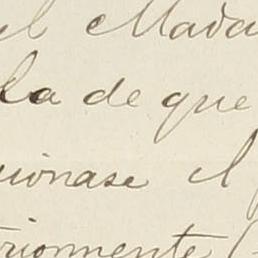 el Mada
la de que
ionase el
riormente